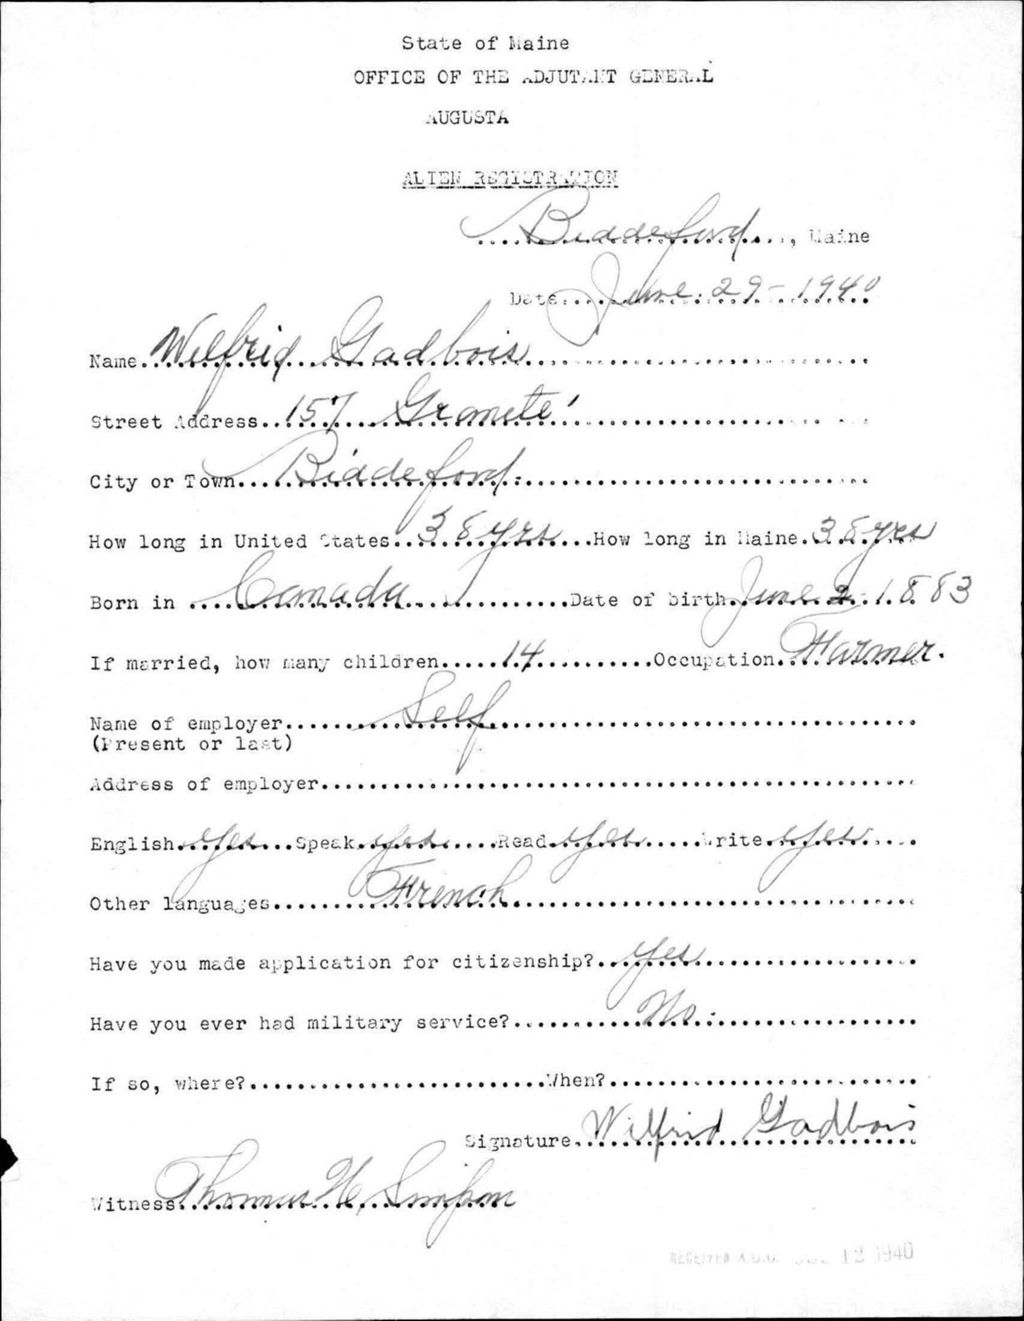 State of Maine
OFFICE OF THE ADJUTANT GENERAL
AUGUSTA
ALIEN REGISTRATION
Biddeford, Maine
Date June 29-1940
Name Wilfrid Gadbois
Street Address 157 Granite
City or Town Biddeford
How long in United States 38 yrs How long in Maine 38 yrs
Born in Canada Date of birth June 2-1883
If married, how many children 14 Occupation Farmer.
Name of employer Self
(Present or last)
Address of employer
English Yes Speak yes Read Yes Write yes
Other languages French
Have you made application for citizenship? Yes
Have you ever had military service? No
If so, where? When?
Signature Wilfrid Gadbois
Witness Thomas H. Simpson
RECEIVED 12 1940